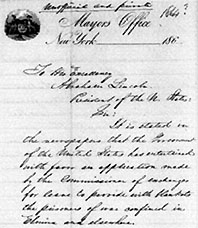 Unofficial and private
1864?
Mayor's Office
New York 186
To His Excellency
Abraham Lincoln
President of the U. States:
Sir:
It is stated in
the newspapers that the Government
of the United States has entertained
with favor an application made
by the Commissioner of exchanges
for leave to provide with blankets
the prisoners of war confined in
Elmira and elsewhere.